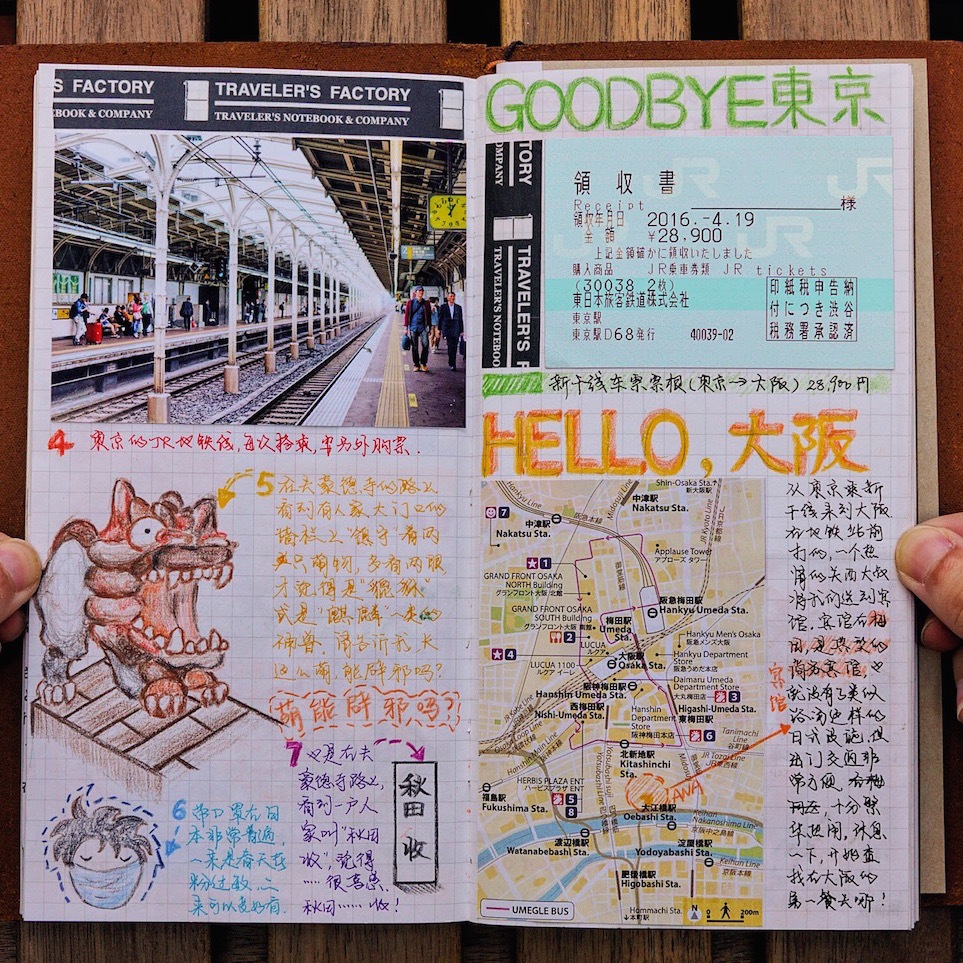 S FACTORY
EBOOK & COMPANY
TRAVELER'S FACTORY
TRAVELER'S NOTEBOOK & COMPANY
4 東京的JR地铁线,再次穿来,率另外购票.
5 在去豪德寺的路上
看到有人家大门口的
墙柱上镇守着两
只萌物,多看两眼
才觉得是"貔貅"
或是"麒麟"一类的
神兽.
这么萌,能辟邪吗?
萌能辟邪吗?
6 带口罩在日
本非常普通,
一来是春天花
粉过敏,二
来可以多好看.
7 这是在去
豪德寺路上,
看到一户人
家叫"秋田
收",觉得
……很喜感.
秋田……收!
秋田 收
GOODBYE東京
ORY
COMPANY
TRAVELER'S F
TRAVELER'S NOTEB
領収書
Receipt 様
領収年月日 2016.-4.19
金額 ¥28,900
上記金額確かに領収いたしました
購入商品 JR乗車券類 JR tickets
(30038 2枚)
東日本旅客鉄道株式会社
東京駅
東京駅D68発行 40039-02
印紙税申告納
付につき渋谷
税務署承認済
JR
新干线车票票根(東京→大阪) 28,900円
HELLO,大阪
Shin-Osaka Sta.
新大阪駅
Hankyu Line
Midosuji Line
JR Kyoto Line
7
中津駅
Nakatsu Sta.
阪急本線
中津駅
Nakatsu Sta.
Applause Tower
アプローズ タワー
1
GRAND FRONT OSAKA
NORTH Building
グランフロント大阪 北館
GRAND FRONT OSAKA
SOUTH Building
グランフロント大阪 南館
2
阪急梅田駅
Hankyu Umeda Sta.
梅田駅
Umeda Sta.
LUCUA
4
LUCUA 1100
ルクア イーレ
大阪駅
Osaka Sta.
Hankyu Men's Osaka
阪急メンズ大阪
Hankyu Department
Store
阪急うめだ本店
阪神梅田駅
Hanshin Umeda Sta.
Daimaru Umeda
Department Store
大丸梅田店
3
西梅田駅
Nishi-Umeda Sta.
Hanshin
Department
Store
阪神梅田本店
Higashi-Umeda Sta.
東梅田駅
6
Tanimachi
Line
谷町線
北新地駅
Kitashinchi
Sta.
JR Tozai Line
JR東西線
HERBIS PLAZA ENT
ハービスプラザ ENT
5
8
ANA
福島駅
Fukushima Sta.
大江橋駅
Oebashi Sta.
Keihan
Nakanoshima Line
京阪中之島線
渡辺橋駅
Watanabebashi Sta.
淀屋橋駅
Yodoyabashi Sta.
Keihan Line
京阪本線
肥後橋駅
Higobashi Sta.
Hommachi Sta.
本町駅
UMEGLE BUS
N
200m
宾馆
从東京乘新
干线来到大阪
在地铁站前
打的,一个热
情的关西大叔
将我们送到宾
馆.宾馆在梅
田,是典型的
商务宾馆,
就没有了类似
汤这样的
日式设施,但
出门交通非
常方便.
十分繁
华热闹,休息
一下,开始查
找在大阪的
第一餐去哪!